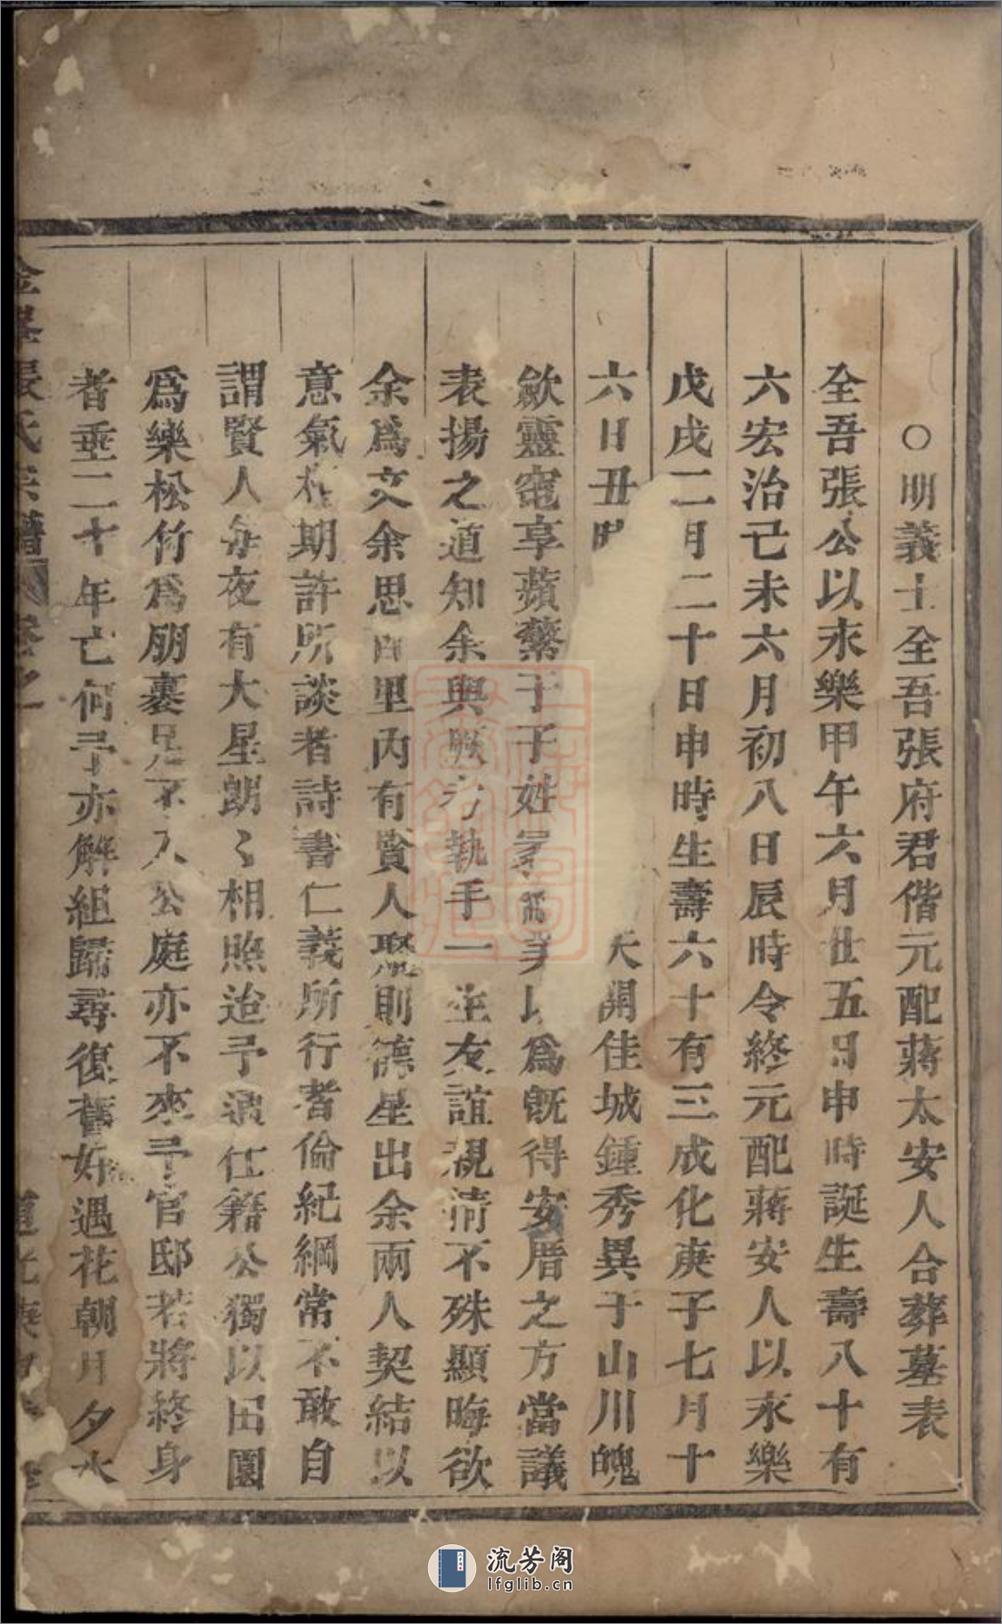 ○明義士全吾張府君偕元配蔣太安人合葬墓表
全吾張公以永樂甲午六月廿五日申時誕生壽八十有
六宏治己未六月初八日辰時令終元配蔣安人以永樂
戊戌二月二十日申時生壽六十有三成化庚子七月十
六日丑時 天開佳城鍾秀異于山川魄
歛靈窀享蘋蘩于子姓 以為既得安厝之方當議
表揚之道知余與 執手一生友誼親情不殊顯晦欲
余爲文余思 里內有賢人聚則德星出余兩人契結以
意氣相期許所談者詩書仁義所行者倫紀綱常不敢自
謂賢人每夜有大星朗〻相照迨予 仕籍公獨以田園
爲樂松竹爲朋裹足不入公庭亦不來予官邸若將終身
者垂二十年亡何予亦解組歸尋復舊好遇花朝月夕水
張氏宗譜 卷之
道光庚
流芳阁
lfglib.cn